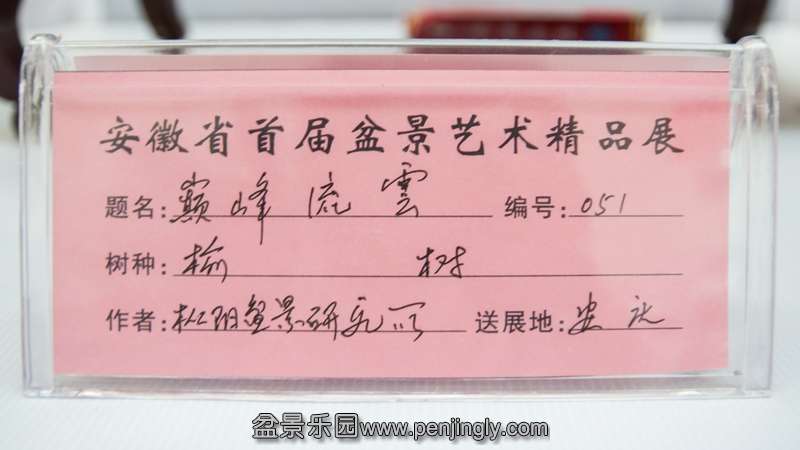 安徽省首届盆景艺术精品展
题名:巅峰流雲 编号:051
树种:榆树
作者:枞阳盆景研究所 送展地:安庆
盆景乐园www.penjingly.com